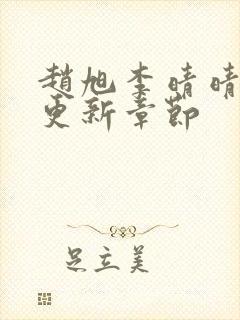 趙旭李晴晴
更新章節
足立美